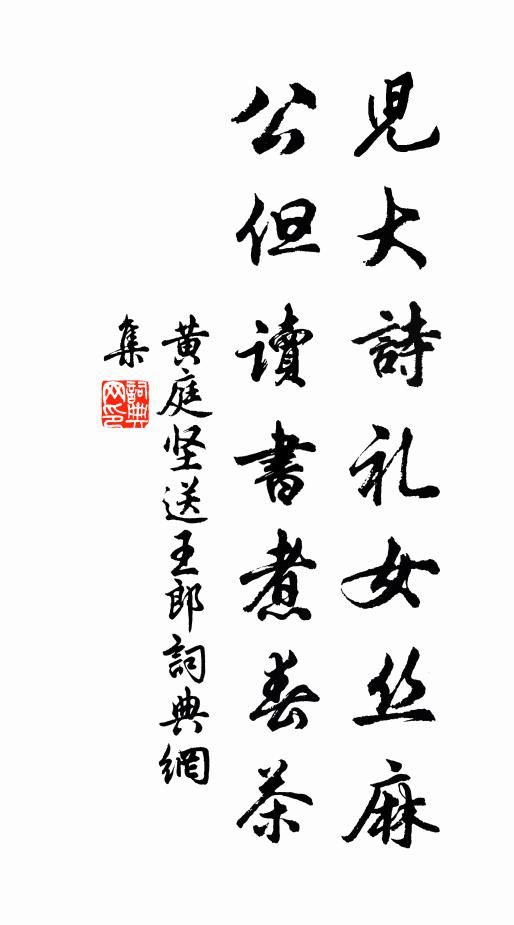 児大詩礼女丝麻
公但讀書煮春茶
黄庭坚送王郎詞典網
集
詞典
网印